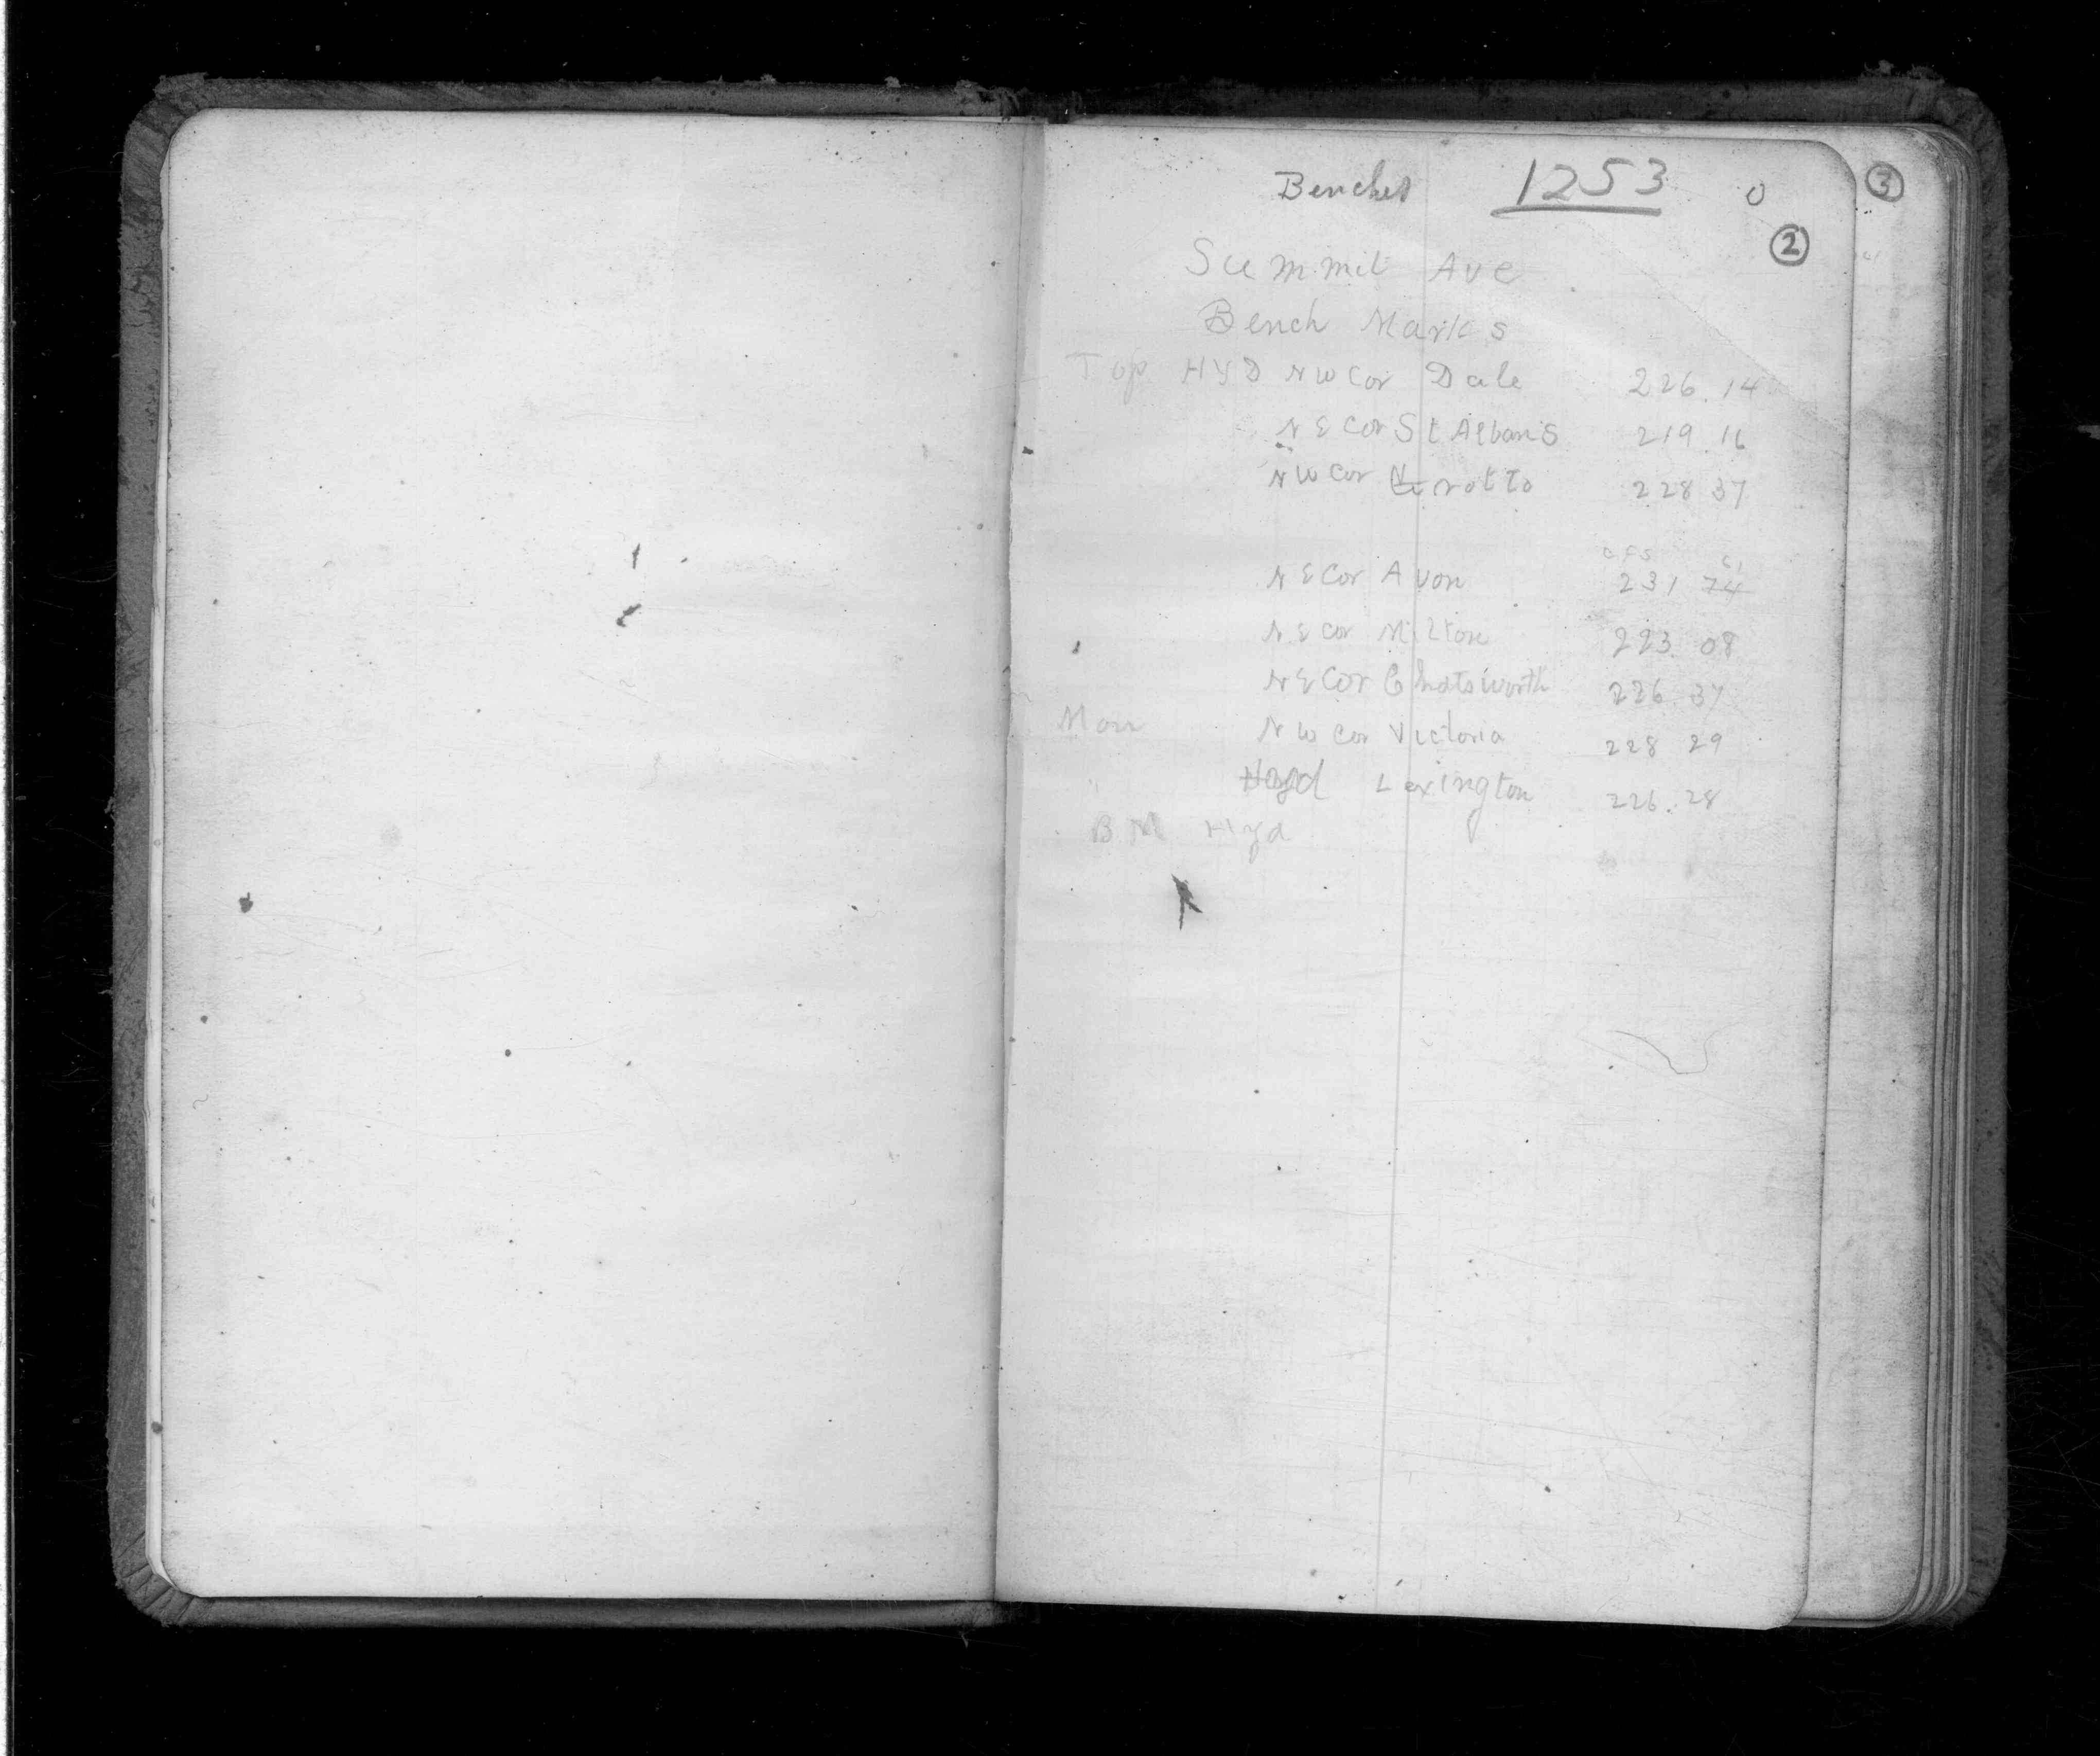 Benches 1253 0
③
②
Summit Ave
Bench Marks
Top HYD NW Cor Dale 226.14
NE Cor St Albans 219.16
NW Cor Grotto 228 37
NE Cor Avon 231 74
NE Cor Milton 223.08
NE Cor Chatsworth 226 37
Mon NW Cor Victoria 228 29
" Hyd Lexington 226.28
B M Hyd